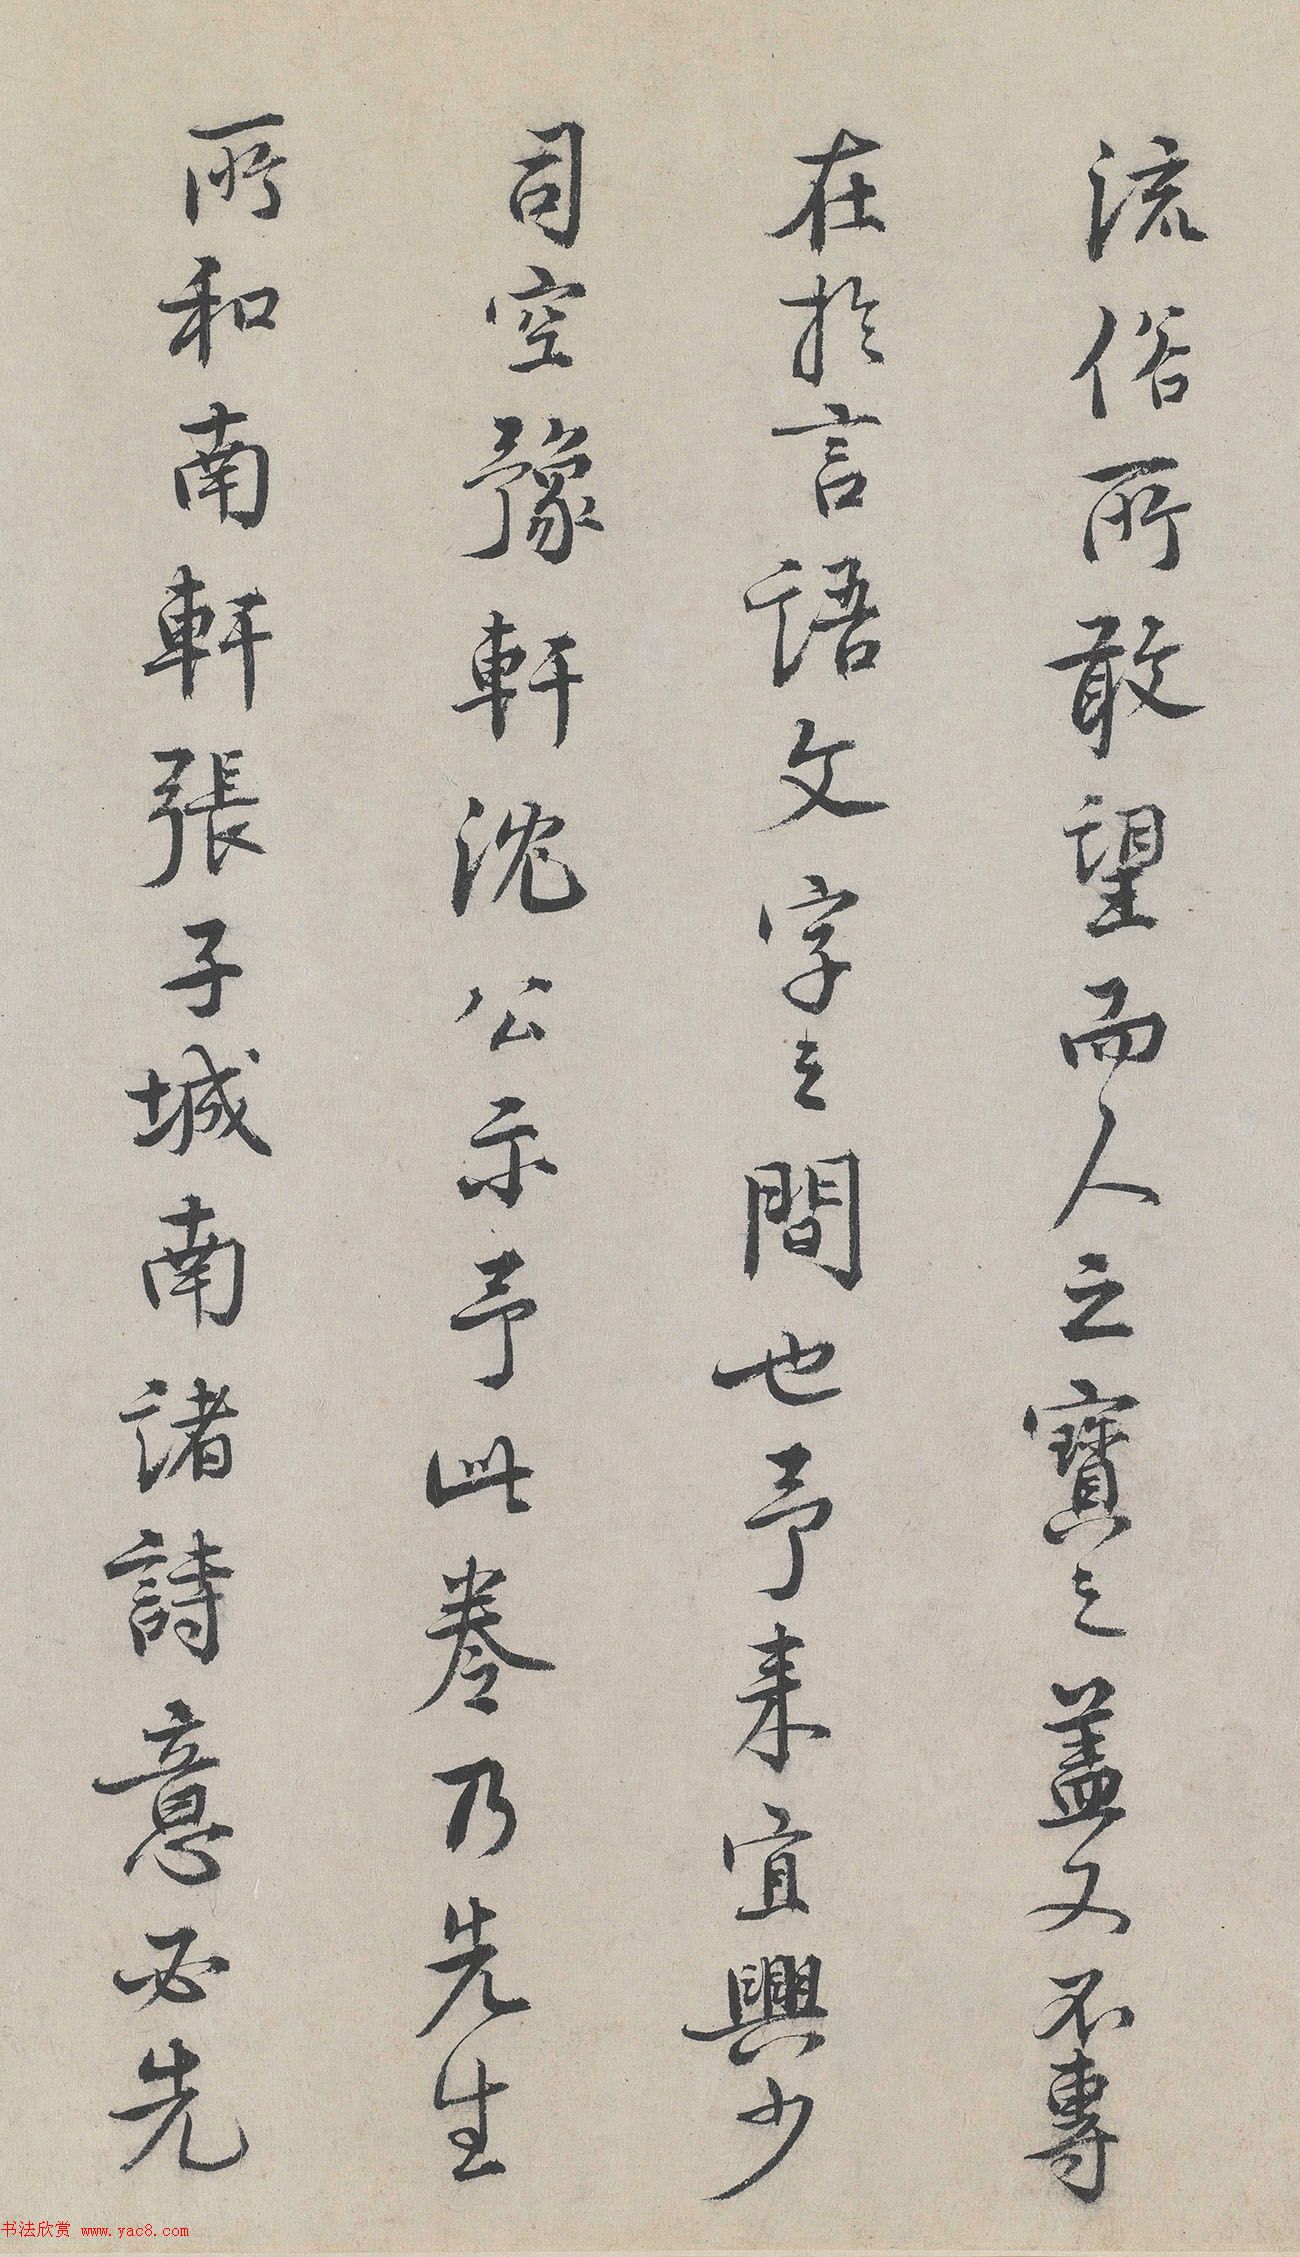 流俗所敢望而人之寶之蓋又不專
在於言語文字之間也予来宜興少
司空豫軒沈公示予此卷乃先生
所和南軒張子城南諸詩意必先
书法欣赏 www.yac8.com